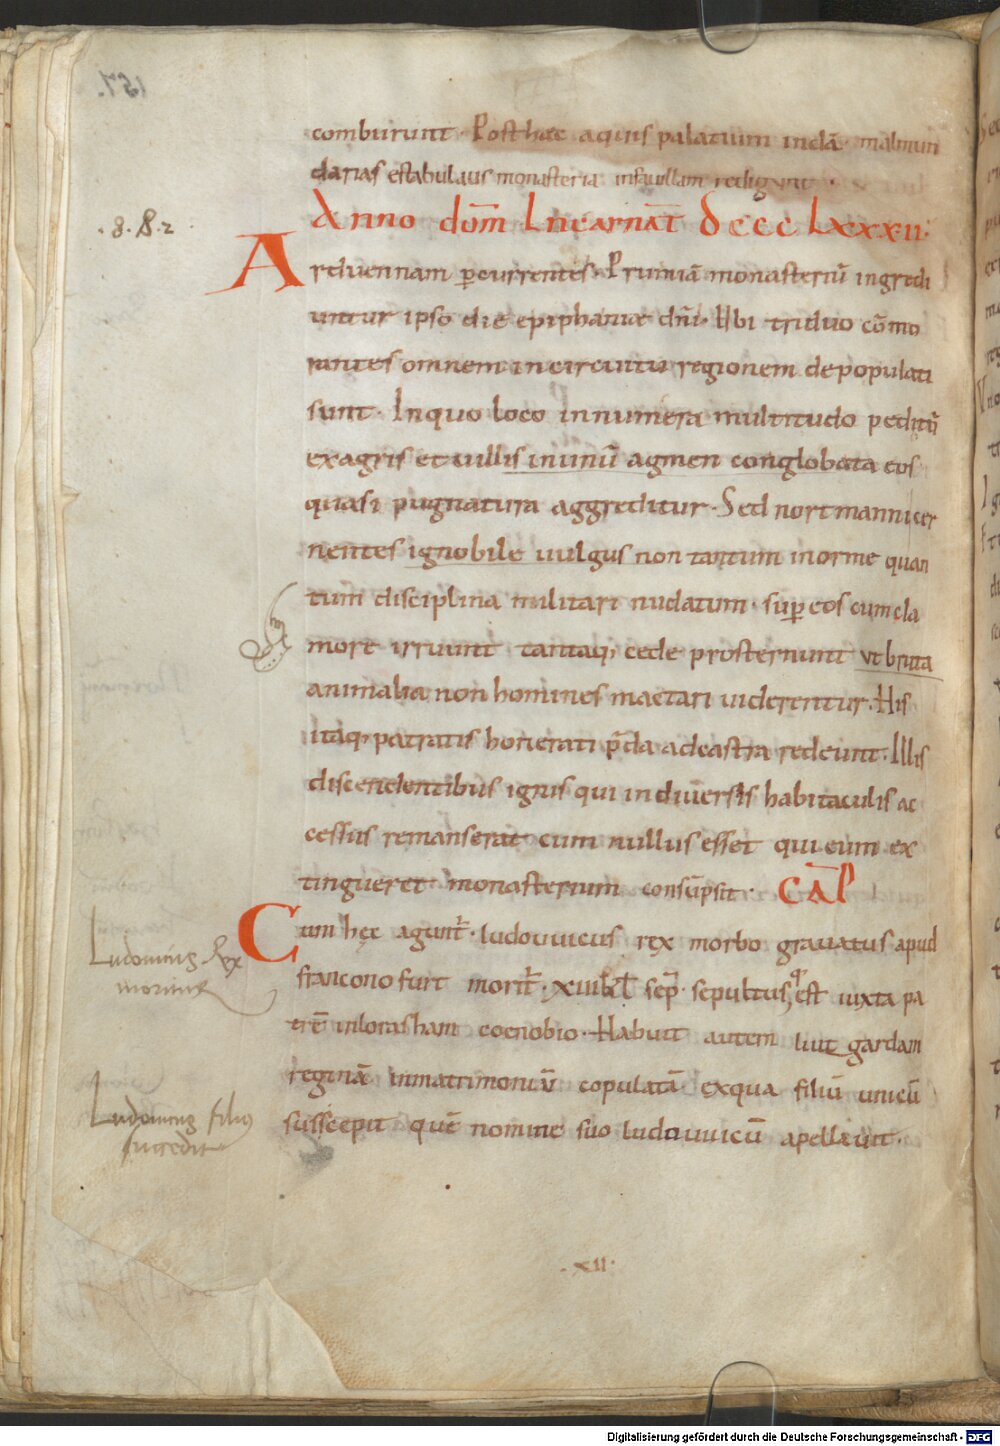 157.
comburunt· Posthaec aquis palatium indā· malmun
darias &stabulaus monasteria infauillam redigunt·
Anno dom̄. Incarnat̄ DCCC LXXXII·
·8·8·2·
Arduennam p̄currentes· Prumiā monasteriū ingredi
untur ipso die epiphaniae dn̄i· Ubi triduo cōmo
rantes omnem incircuitu regionem depopulati
sunt· Inquo loco innumera multitudo peditū
exagris et uillis inunū agmen conglobata eos
quasi pugnatura aggreditur· Sed nortmanni cer
nentes ignobile uulgus non tantum inerme quan
tum disciplina militari nudatum· sup̄ eos cumcla
more irruunt tantaq; cede prosternunt ut bruta
animalia non homines mactari uiderentur· His
itaq; patratis honerati p̄da adcastra redeunt· Illis
discendentibus ignis qui indiuersis habitaculis ac
cessus remanserat cum nullus esset qui eum ex
tingueret· monasterium consūpsit· CAP̄
Cum hęc agunt̄· ludouuicus rex morbo grauatus apud
Ludouicus Rex
moritur
franconofurt morit̄· xiii kl̄ sep̄· sepultusq; est iuxta pa
trē inlorasham coenobio· Habuit autem liutgardam
reginā inmatrimoniū copulatā exqua filiū unicū
Ludouicus filius
succedit
suscepit quē nomine suo ludouuicū apellauit·
·XII·
Digitalisierung gefördert durch die Deutsche Forschungsgemeinschaft - DFG